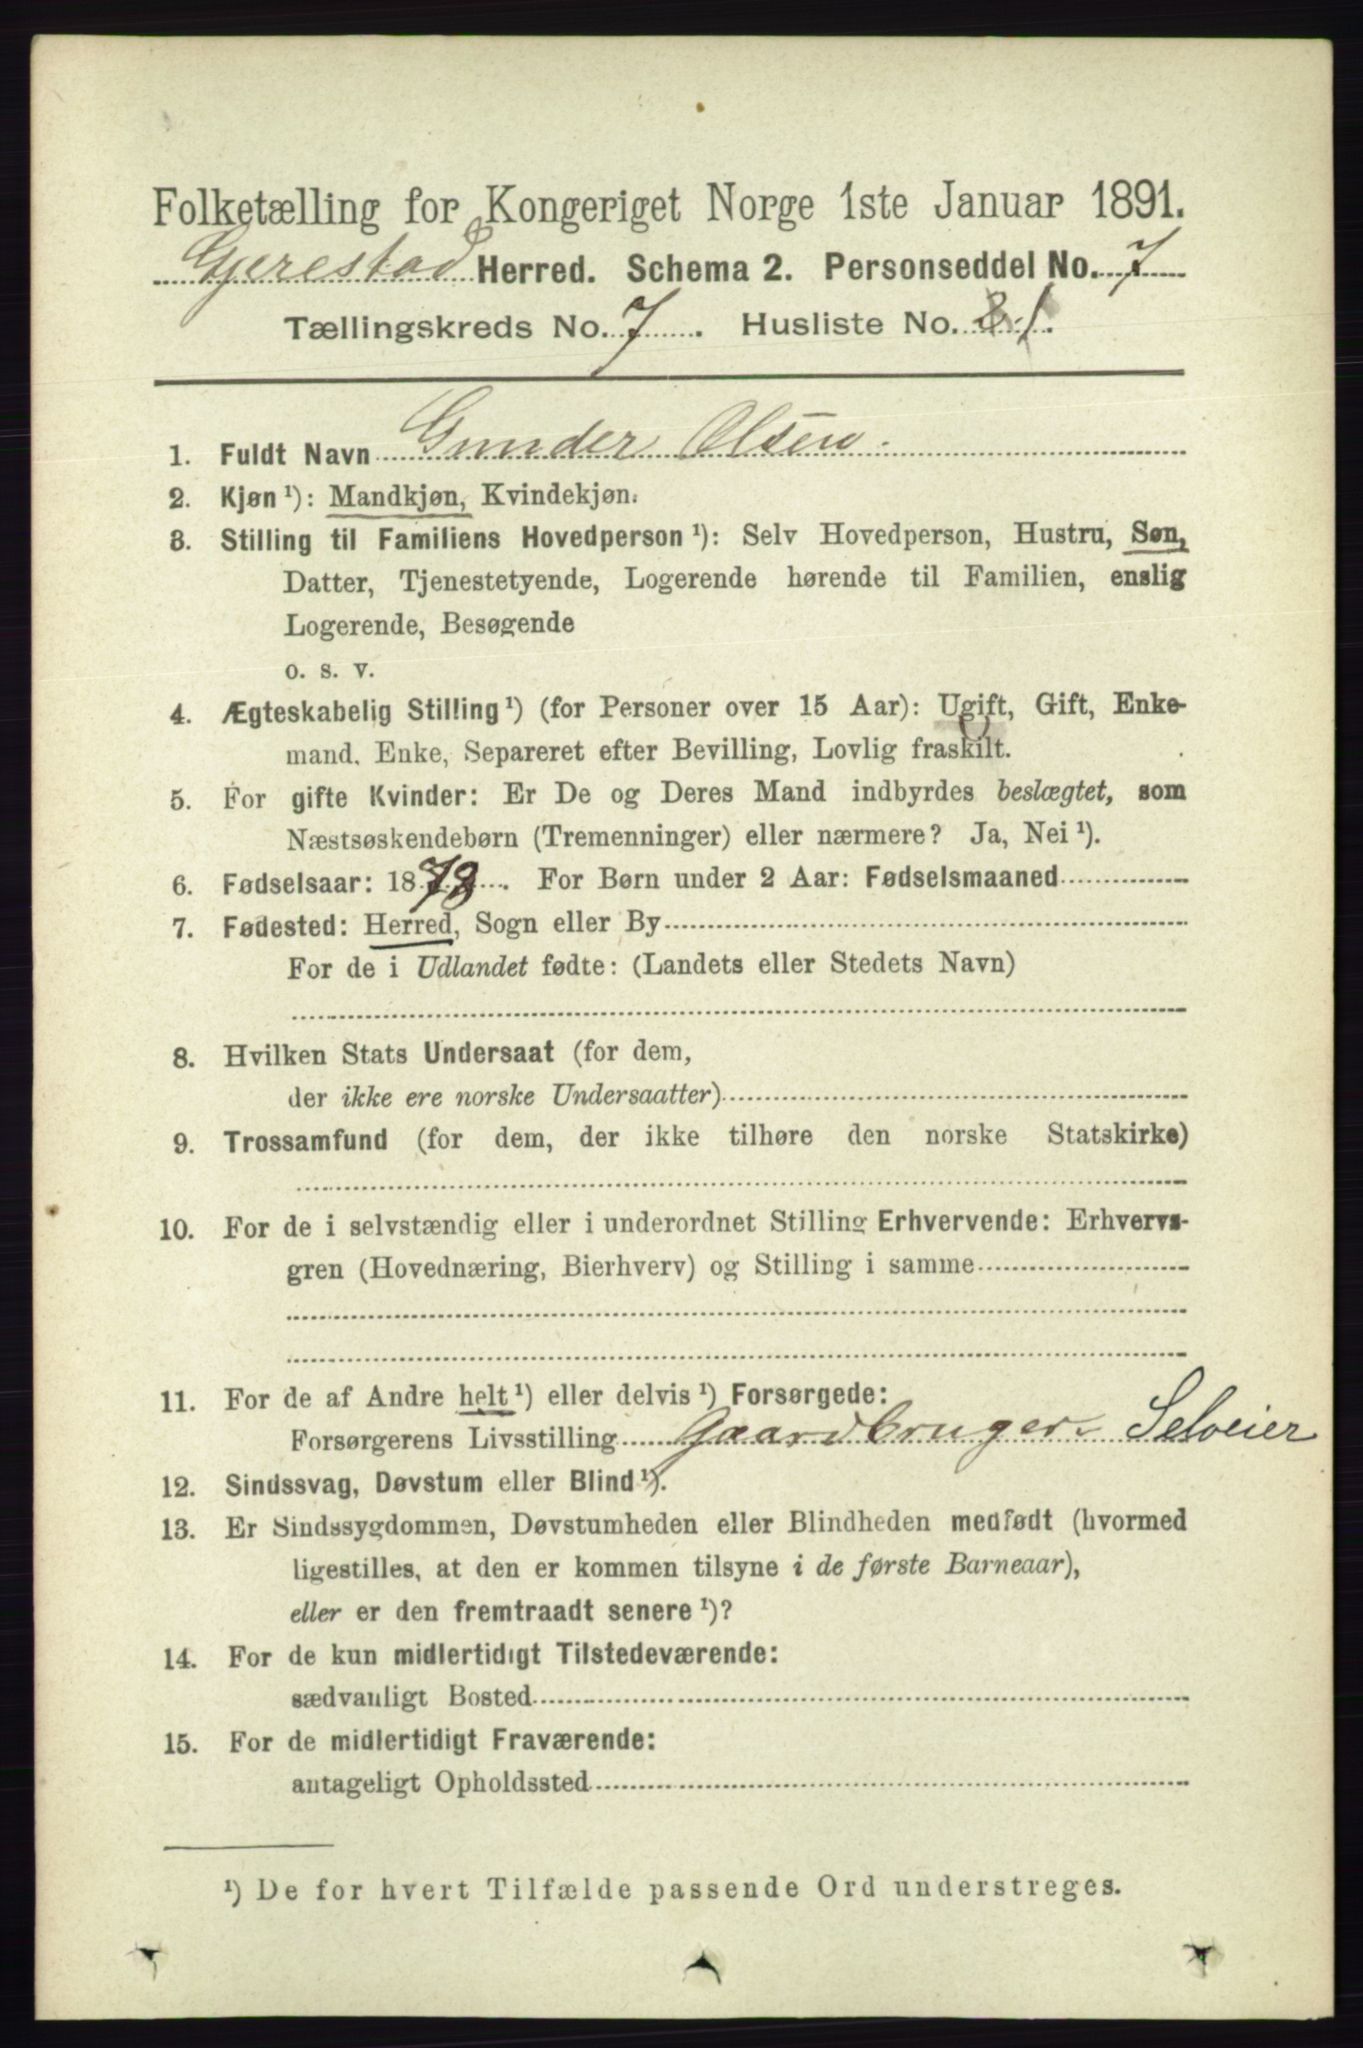 Folketælling for Kongeriget Norge 1ste Januar 1891.
Gjerestad Herred. Schema 2. Personseddel No. 7
Tællingskreds No. 7. Husliste No. 21.
1. Fuldt Navn Gunder Olsen.
2. Kjøn ¹): Mandkjøn, Kvindekjøn.
3. Stilling til Familiens Hovedperson ¹): Selv Hovedperson, Hustru, Søn,
Datter, Tjenestetyende, Logerende hørende til Familien, enslig
Logerende, Besøgende
o. s. v.
4. Ægteskabelig Stilling ¹) (for Personer over 15 Aar): Ugift, Gift, Enke-
mand, Enke, Separeret efter Bevilling, Lovlig fraskilt.
5. For gifte Kvinder: Er De og Deres Mand indbyrdes beslægtet, som
Næstsøskendebørn (Tremenninger) eller nærmere? Ja, Nei ¹).
6. Fødselsaar: 1878. For Børn under 2 Aar: Fødselsmaaned
7. Fødested: Herred, Sogn eller By
For de i Udlandet fødte: (Landets eller Stedets Navn)
8. Hvilken Stats Undersaat (for dem,
der ikke ere norske Undersaatter)
9. Trossamfund (for dem, der ikke tilhøre den norske Statskirke)
10. For de i selvstændig eller i underordnet Stilling Erhvervende: Erhvervs-
gren (Hovednæring, Bierhverv) og Stilling i samme
11. For de af Andre helt ¹) eller delvis ¹) Forsørgede:
Forsørgerens Livsstilling Gaardbruger Selveier
12. Sindssvag, Døvstum eller Blind ¹).
13. Er Sindssygdommen, Døvstumheden eller Blindheden medfødt (hvormed
ligestilles, at den er kommen tilsyne i de første Barneaar),
eller er den fremtraadt senere ¹)?
14. For de kun midlertidigt Tilstedeværende:
sædvanligt Bosted
15. For de midlertidigt Fraværende:
antageligt Opholdssted
¹) De for hvert Tilfælde passende Ord understreges.